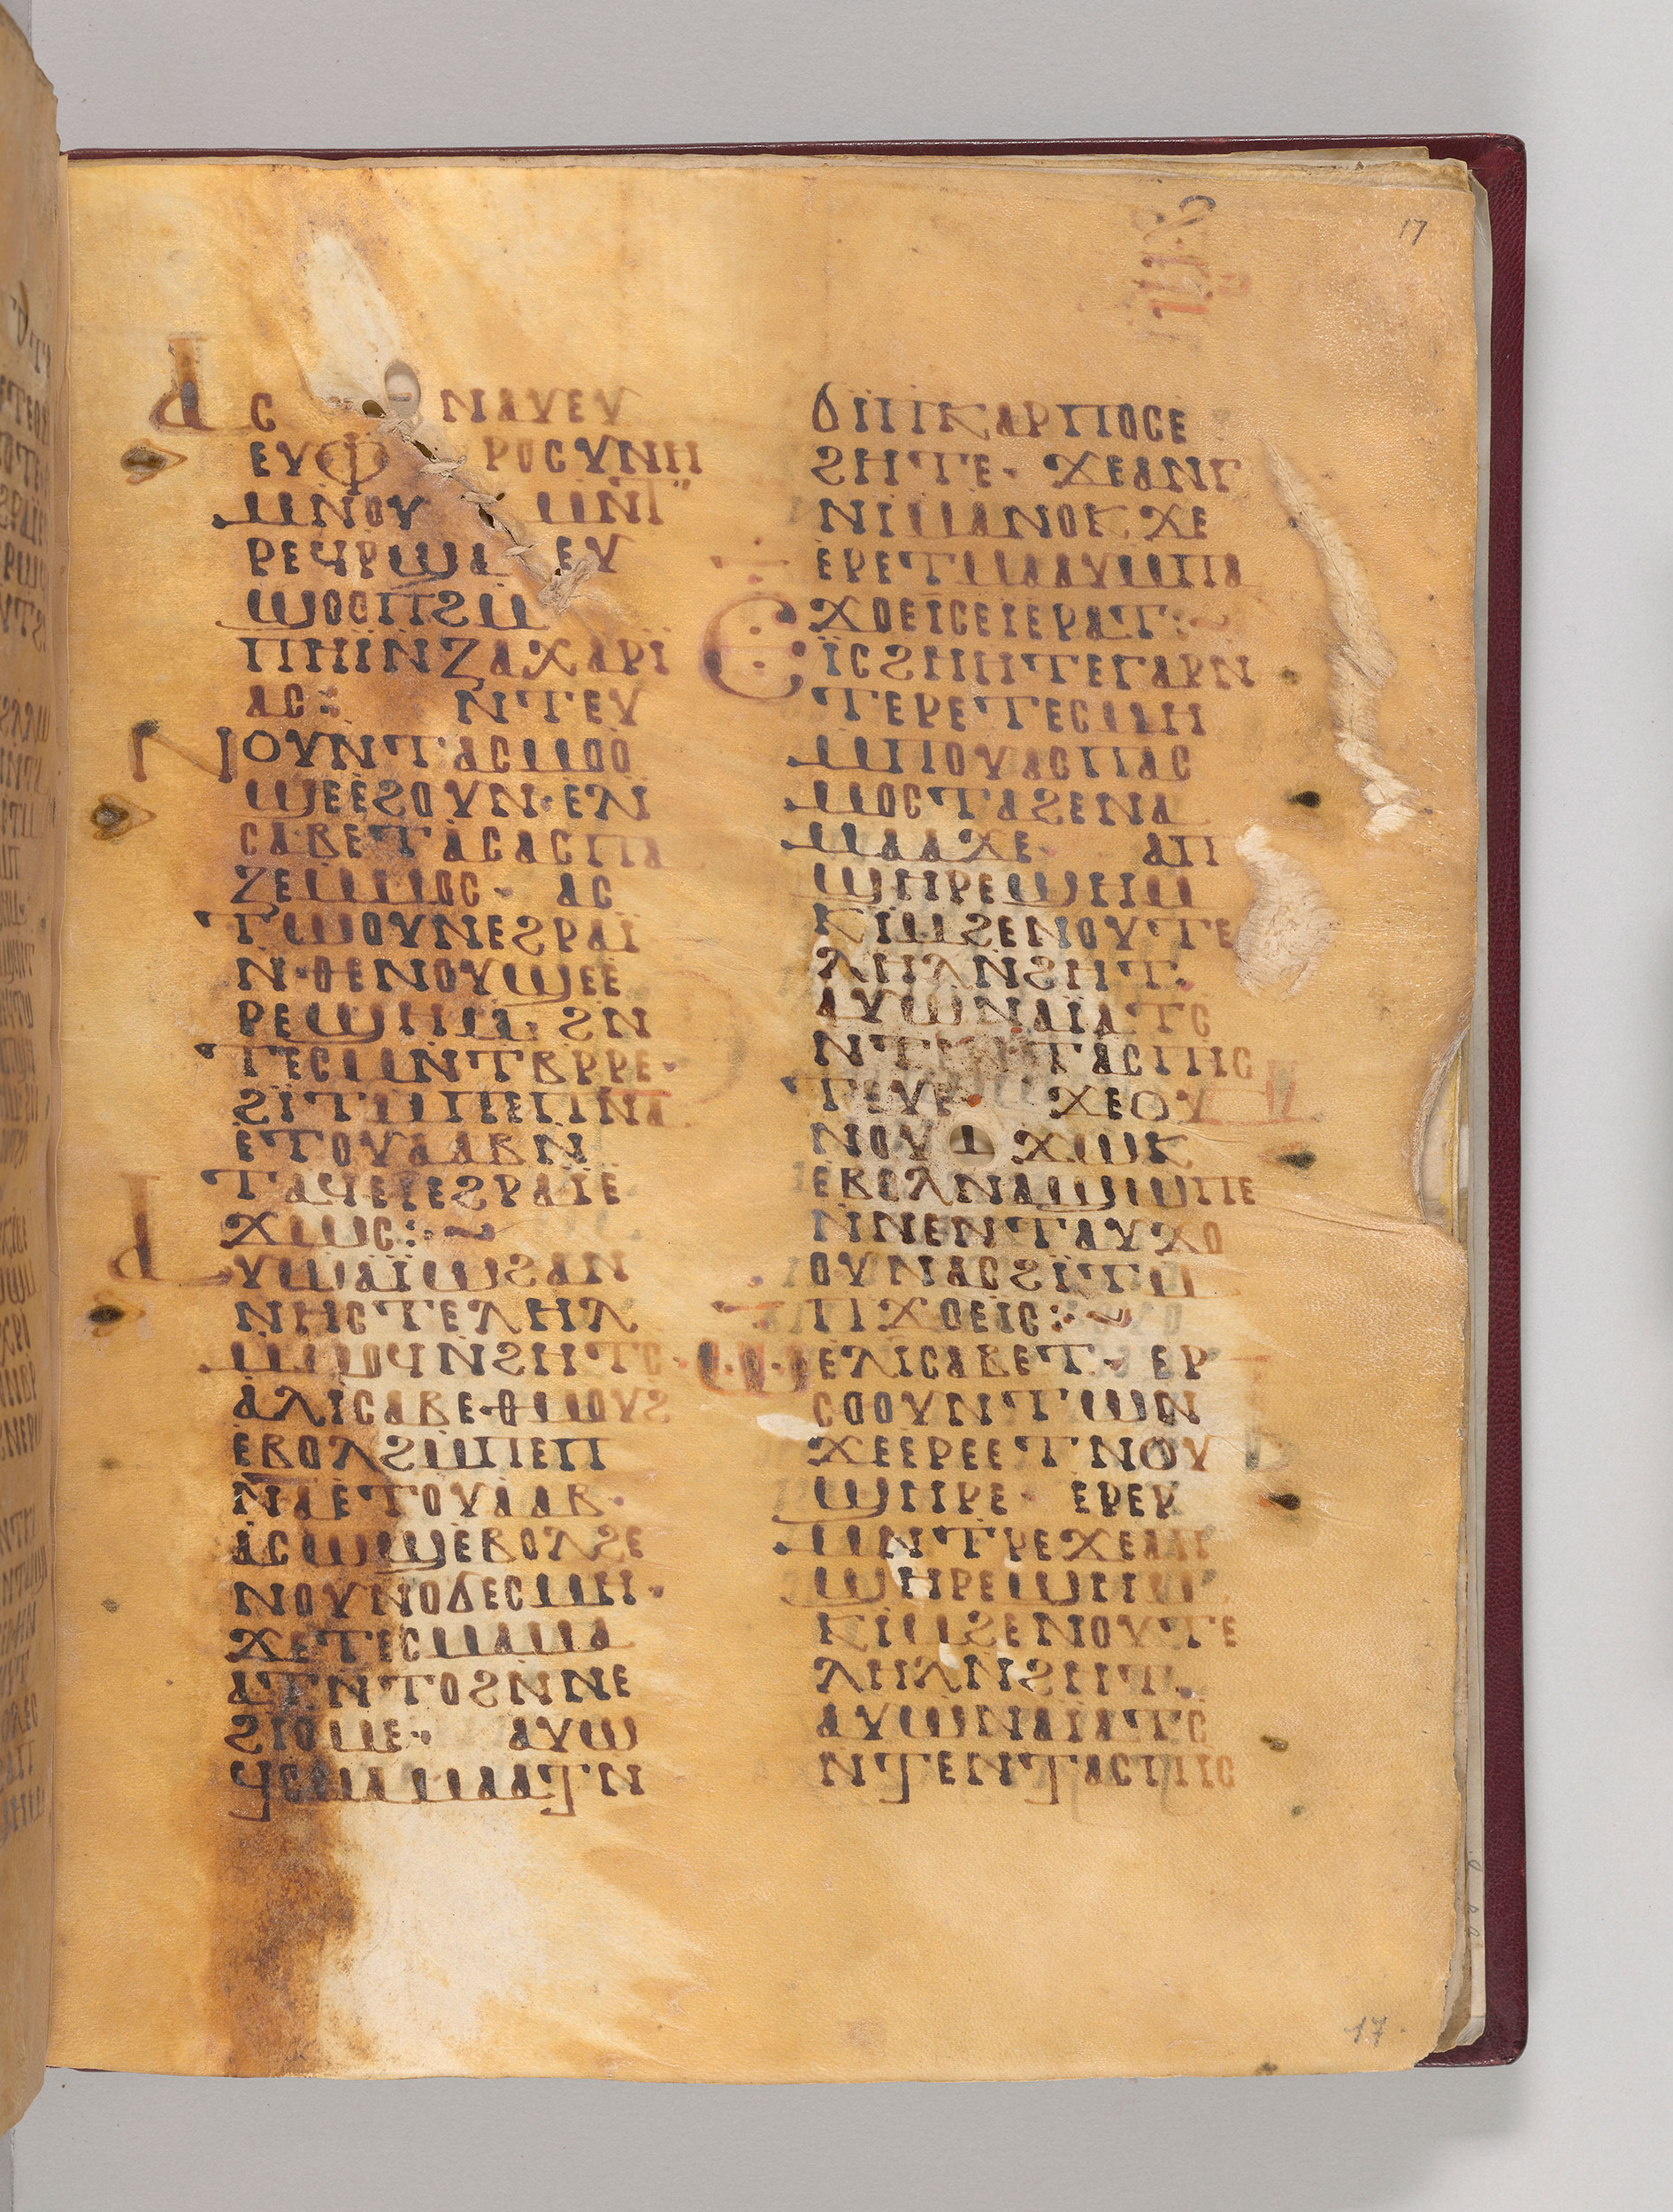 ⲁⲥ ⲛⲁⲩⲉⲩ
ⲉⲩⲫⲣⲟⲥⲩⲛⲏ
ⲙⲛⲟⲩ ⲙⲛⲧ
ⲣⲉϥⲣϣⲁ ⲉⲩ
ϣⲟⲟⲡϩⲙ
ⲡⲏⲓ̈ⲛⲍⲁⲭⲁⲣⲓ̈
ⲁⲥ: ⲛⲧⲉⲩ
ⲛⲟⲩⲛⲧⲁⲥⲙⲟⲟ
ϣⲉⲉϩⲟⲩⲛ·ⲉⲗⲓ
ⲥⲁⲃⲉⲧⲁⲥⲁⲥⲡⲁ
ⲍⲉⲙⲙⲟⲥ· ⲁⲥ
ⲧⲱⲟⲩⲛⲉϩⲣⲁⲓ̈
ⲛ·ⲑⲉⲛⲟⲩϣⲉⲉ
ⲣⲉϣⲏⲙ· ϩⲛ
ⲧⲉⲥⲙⲛⲧⲃⲣⲣⲉ·
ϩⲓ̈ⲧⲙⲡⲉⲡⲛⲁ
ⲉⲧⲟⲩⲁⲁⲃⲛ
ⲧⲁϥⲉⲓⲉϩⲣⲁⲓ̈ⲉ
ϫⲱⲥ:~
ⲁⲩⲱⲁⲓ̈ⲱϩⲁⲛ
ⲛⲏⲥⲧⲉⲗⲏⲗ
ⲙⲙⲟϥⲛϩⲏⲧⲥ·
ⲁⲗⲓⲥⲁⲃⲉ·ⲑⲙⲟⲩϩ
ⲉⲃⲟⲗϩⲙⲡⲉⲡ
ⲛⲁⲉⲧⲟⲩⲁⲁⲃ·
ⲁⲥⲱϣⲉⲃⲟⲗϩⲉ
ⲛⲟⲩⲛⲟϭⲉⲥⲙⲏ·
ϫⲉⲧⲉⲥⲙⲁⲙⲁ
ⲁⲧⲛⲧⲟϩⲛⲛⲉ
ϩⲓⲟⲙⲉ· ⲁⲩⲱ
ϥⲥⲙⲁⲙⲁⲁⲧⲛ
ϭⲓⲡⲕⲁⲣⲡⲟⲥⲉ
ϩⲏⲧⲉ· ϫⲉⲁⲛⲅ
ⲛⲓⲙⲁⲛⲟⲕϫⲉ
ⲉⲣⲉⲧⲙⲁⲁⲩⲙⲡⲁ
ϫⲟⲉⲓ̈ⲥⲉⲓⲉⲣⲁⲧ:~
ⲉⲓ̈ⲥϩⲏⲏⲧⲉⲅⲁⲣⲛ
ⲧⲉⲣⲉⲧⲉⲥⲙⲏ
ⲙⲡⲟⲩⲁⲥⲡⲁⲥ
ⲙⲟⲥⲧⲁϩⲉⲛⲁ
ⲙⲁⲁϫⲉ· ⲁⲡ
ϣⲏⲣⲉϣⲏⲙ
ⲕⲓⲙϩⲉⲛⲟⲩⲧⲉ
ⲗⲏⲗⲛϩⲏⲧ·
ⲁⲩⲱⲛⲁⲓ̈ⲁⲧⲥ
ⲛⲧⲉⲛⲧⲁⲥⲡⲓⲥ
ⲧⲉⲩⲉ ϫⲉⲟⲩ
ⲛⲟⲩ ϫⲱⲕ
ⲉⲃⲟⲗⲛⲁϣⲱⲡⲉ
ⲛⲛⲉⲛⲧⲁⲩϫⲟ
ⲟⲩⲛⲁⲥϩⲓ̈ⲧⲙ
ⲡϫⲟⲉⲓⲥ:~
ⲱⲉⲗⲓⲥⲁⲃⲉⲧ· ⲉⲣ
ⲥⲟⲟⲩⲛⲧⲱⲛ
ϫⲉⲉⲣⲉⲉⲧⲛⲟⲩ
ϣⲏⲣⲉ· ⲉⲣⲉⲣ
ⲙⲛⲧⲣⲉϫⲉⲁⲡ
ϣⲏⲣⲉϣⲏⲙ
ⲕⲓⲙϩⲉⲛⲟⲩⲧⲉ
ⲗⲏⲗⲛϩⲏⲧ·
ⲁⲩⲱⲛⲁⲓ̈ⲁⲧⲥ
ⲛⲧⲉⲛⲧⲁⲥⲡⲓⲥ
17
17